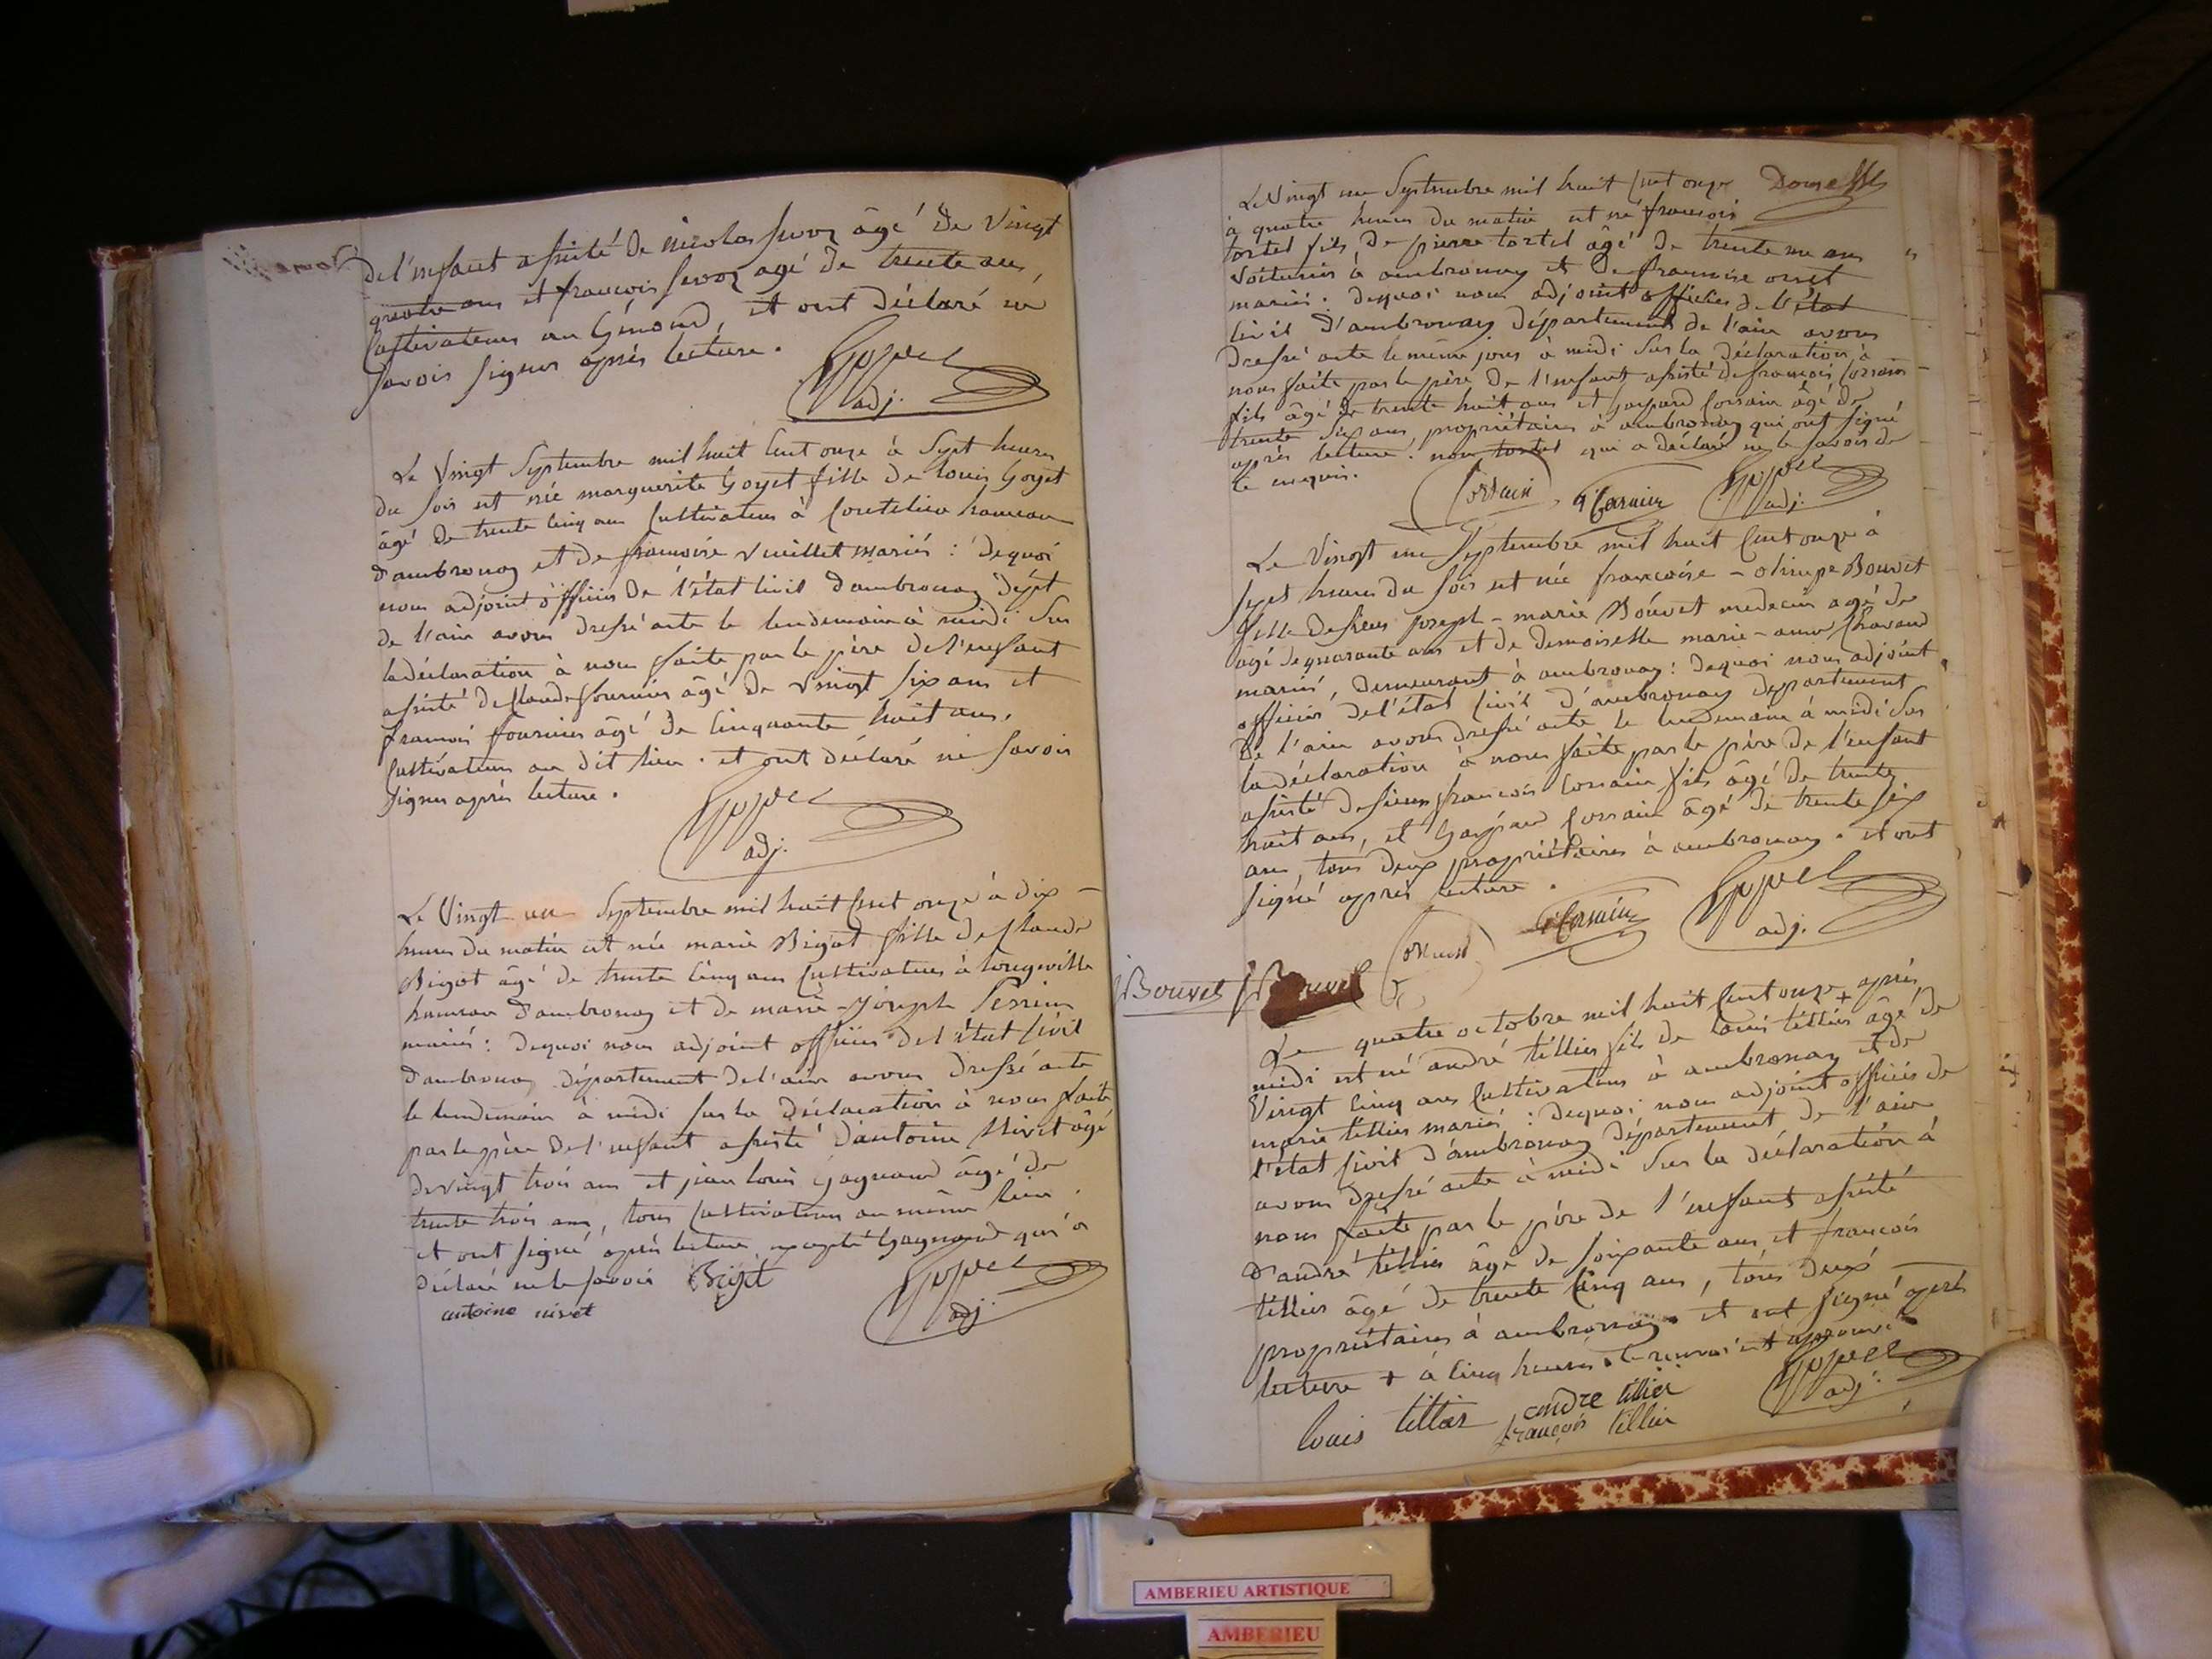 de l'enfant assisté de nicolas âgé de Vingt
quatre ans et françois agé de trente ans,
Cultivateurs au Genoud, et ont déclaré ne
Savoir signer après lecture.
adj.
Le Vingt Septembre mil huit Cent onze à Sept heures
du soir est née marguerite Goyet fille de Louis Goyet
âgé de trente Cinq ans Cultivateur à Coutelieu hameau
d'ambronay et de françoise vuillet mariés : dequoi
nous adjoint officier de l'état civil d'ambronay dépt
de l'ain avons dressé acte le lendemain à midi Sur
la déclaration à nous faite par le père de l'enfant
assisté de Claude fournier âgé de Vingt Six ans et
françois fournier âgé de Cinquante huit ans,
Cultivateurs au dit lieu . et ont déclaré ne Savoir
signer après lecture .
adj.
Le Vingt un Septembre mil huit Cent onze à dix
heures du matin est née marie Bigot fille de Claude
Bigot âgé de trente Cinq ans Cultivateur à longeville
hameau d'ambronay et de marie-joseph
mariés : dequoi nous adjoint officier de l'état Civil
d'ambronay département de l'ain avons dressé acte
le lendemain à midi Sur la déclaration à nous faite
par le père de l'enfant assisté d'antoine Nivet âgé
de vingt trois ans et jean louis Gagnaud âgé de
trente trois ans, tous Cultivateurs au même lieu .
et ont signé après lecture excepté Gagnaud qui a
déclaré ne le savoir
antoine nivet
adj.
Le Vingt un Septembre mil huit Cent onze
à quatre heures du matin est né françois
tortel fils de pierre tortel âgé de trente un ans
Voiturier à ambronay et de françoise orset
mariés. dequoi nous adjoint officier de l'état
Civil d'ambronay département de l'ain avons
dressé acte le même jour à midi Sur la déclaration à
nous faite par le père de l'enfant assisté de françois Corsain
fils âgé de trente huit ans et Gaspard Corsain âgé de
trente Six ans, propriétaires à ambronay qui ont signé
après lecture : non tortel qui a déclaré ne le savoir de
ce enquis.
Corsain G Corsain adj.
Le Vingt un Septembre mil huit Cent onze à
Sept heures du Soir est née françoise - olimpe Bouvet
fille de sieur joseph - marie Bouvet medecin agé de
âgé de quarante ans et de demoiselle marie - anne
mariés, demeurant à ambronay : dequoi nous adjoint
officier de l'état Civil d'ambronay département
de l'ain avons dressé acte le lendemain à midi Sur
la déclaration à nous faite par le père de l'enfant
assisté de sieur françois Corsain fils âgé de trente
huit ans, et Gaspard Corsain âgé de trente six
ans, tous deux propriétaires à ambronay . et ont
signé après lecture .
Corsain G Corsain adj.
Bouvet Bouvet
Le quatre octobre mil huit Cent onze + après
midi est né andré tillier fils de Louis tillier âgé de
Vingt Cinq ans Cultivateur à ambronay et de
marie tillier mariés : dequoi nous adjoint officier de
l'état Civil d'ambronay département de l'ain
avons dressé acte à midi Sur la déclaration à
nous faite par le père de l'enfant assisté
d'andré tillier âgé de Soixante ans et françois
tillier âgé de trente Cinq ans, tous deux
propriétaires à ambronay . et ont signé après
lecture + à Cinq heures . le renvoi est approuvé
louis tillier andre tillier adj.
françois tillier
AMBERIEU ARTISTIQUE
AMBERIEU